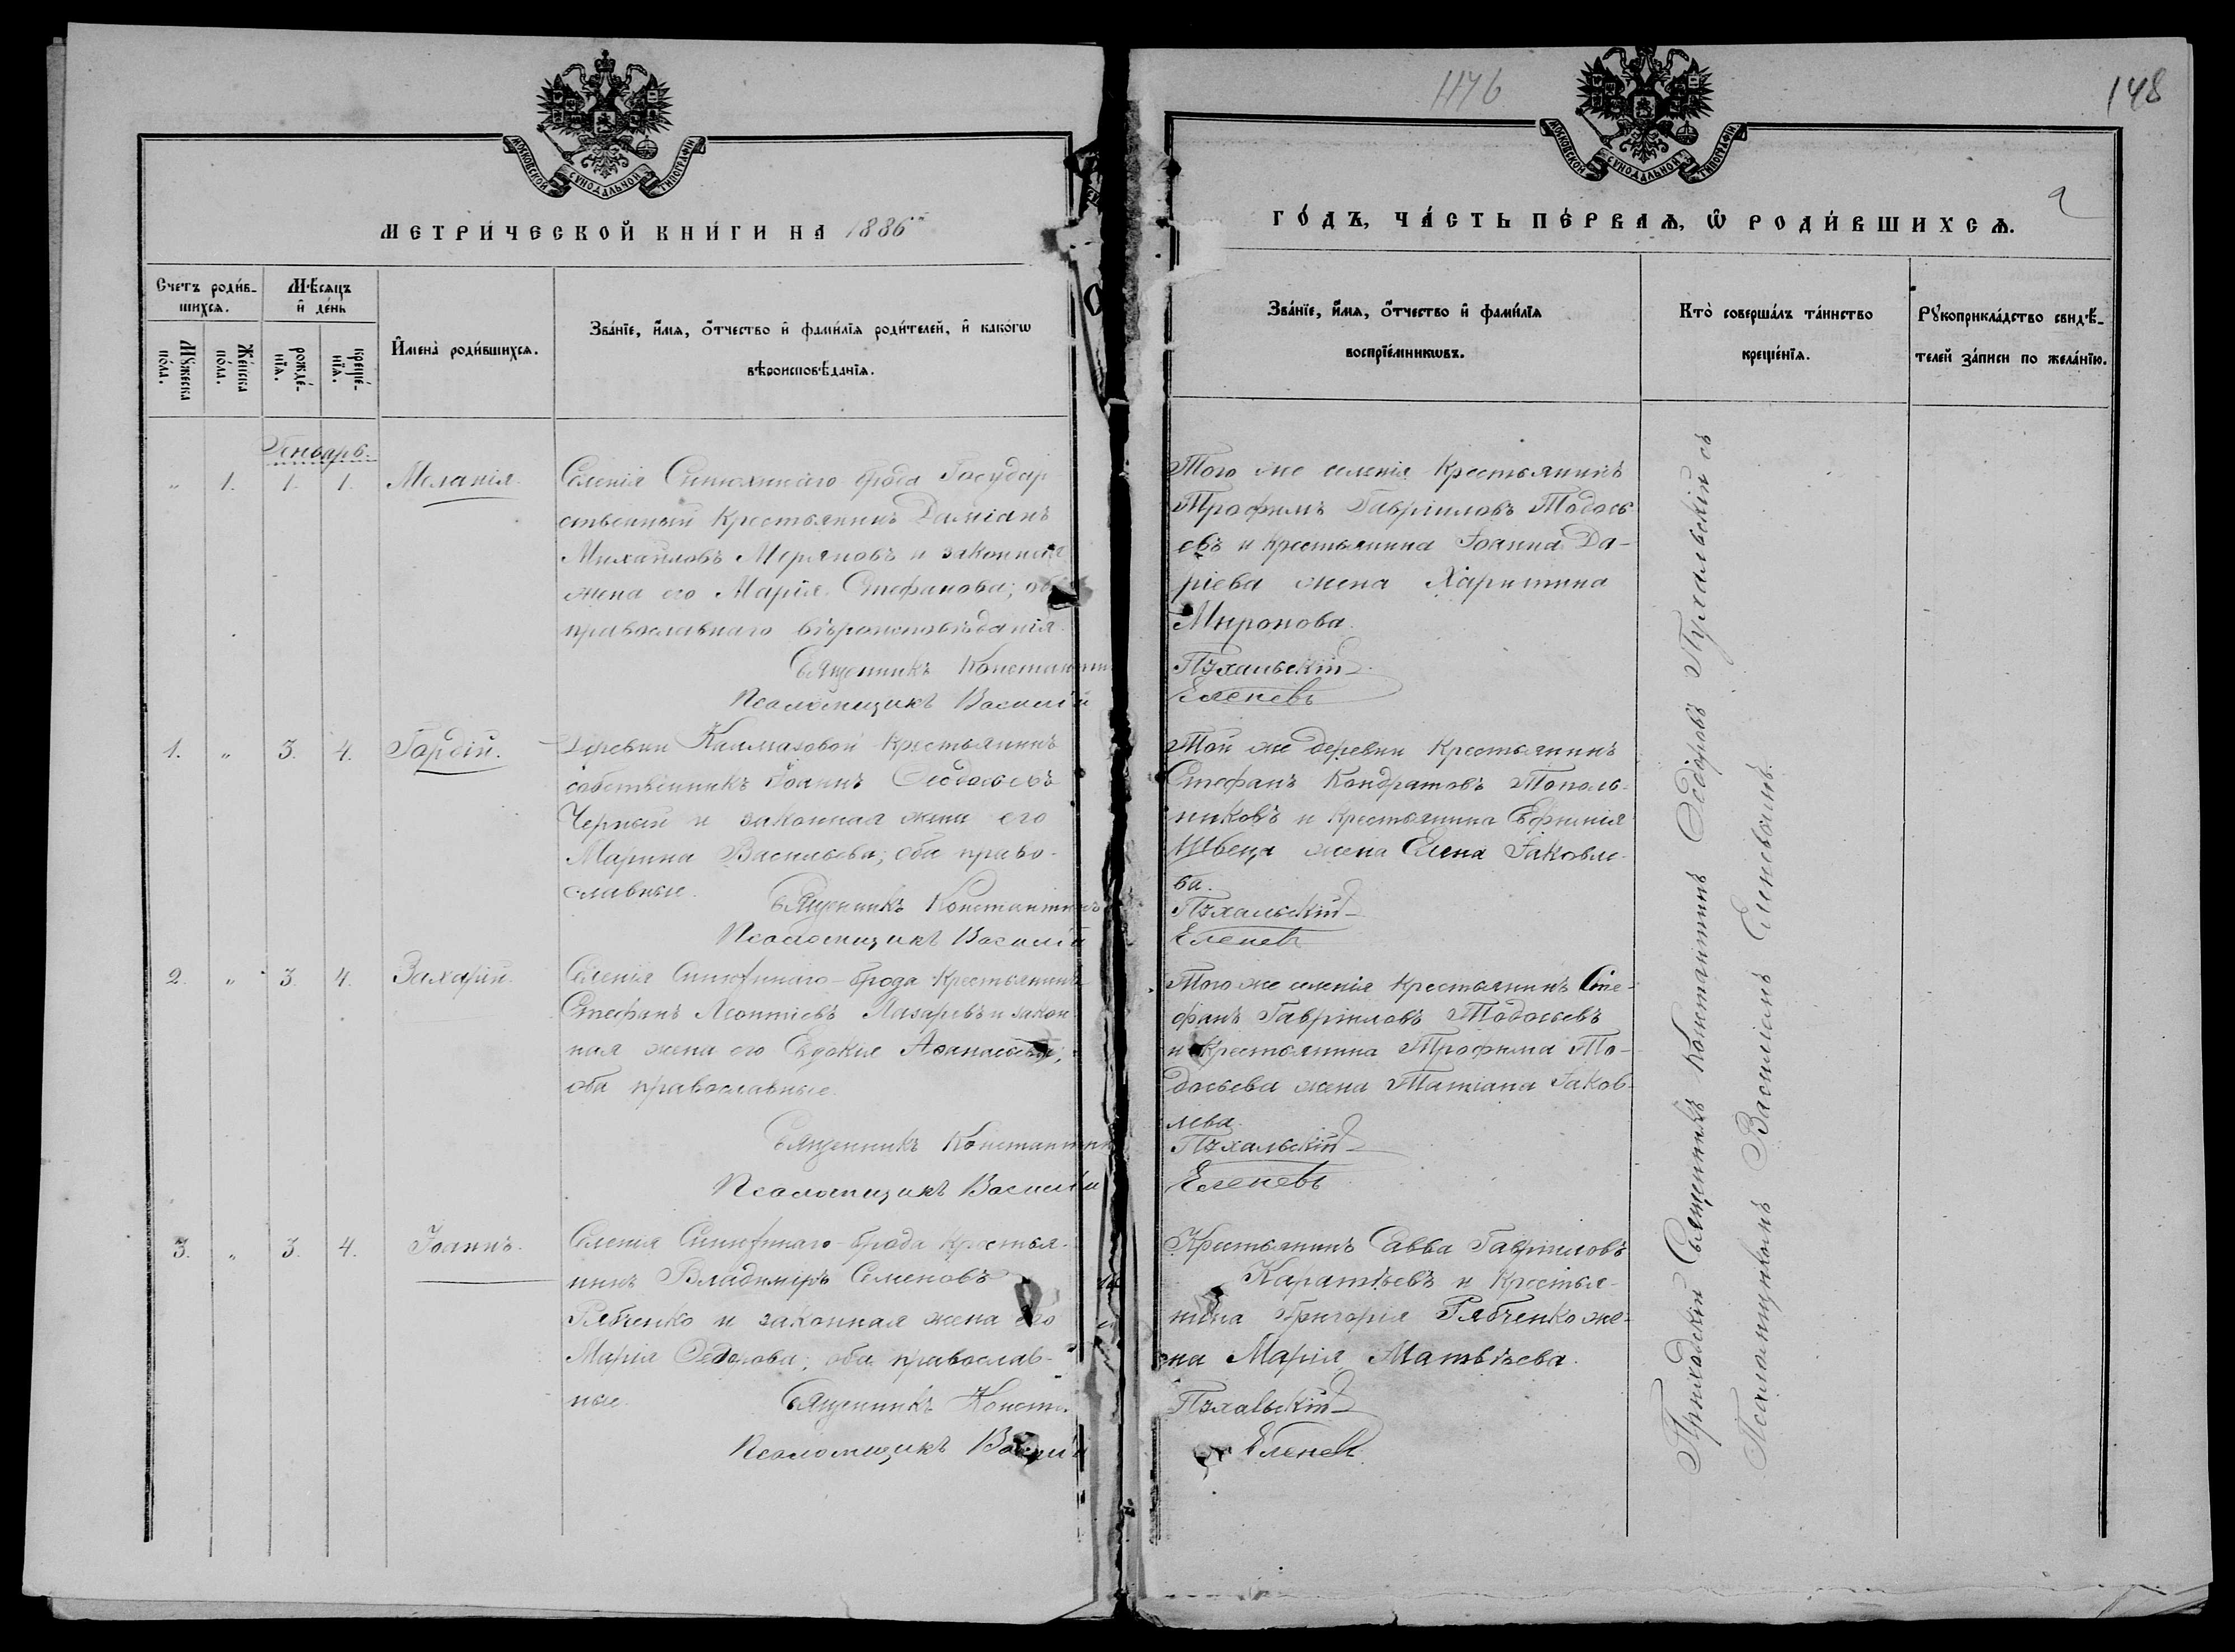 1176
148
2
МОСКОВСКОЙ СѴНОДАЛЬНОЙ ТИПОГРАФІИ
МОСКОВСКОЙ СѴНОДАЛЬНОЙ ТИПОГРАФІИ
МЕТРИ́ЧЕСКОЙ КНИ́ГИ НА 1886й
ГО́ДЪ, ЧА́СТЬ ПЕ́РВАѦ, Ѡ҆ РОДИ́ВШИХСѦ.
Счетъ роди́в-
шихсѧ.
Мꙋ́жеска по́ла.
Же́нска по́ла.
Мѣ́сѧцъ
и҆ де́нь
рожде́-
нїѧ.
креще́-
нїѧ.
И҆мена̀ роди́вшихсѧ.
Зва́нїе, и҆́мѧ, ѻ҆́тчество и҆ фами́лїѧ роди́телей, и҆ како́гѡ
вѣроисповѣ́данїѧ.
Зва́нїе, и҆́мѧ, ѻ҆́тчество и҆ фами́лїѧ
воспрїе́мникѡвъ.
Кто̀ соверша́лъ та́инство
креще́нїѧ.
Рꙋкоприкла́дство свидѣ́-
телей за́писи по жела́нїю.
Генварь.
" 1. 1. 1. Меланія.
Селенія Синюхинаго брода Государ
ственный крестьянинъ Даміанъ
Михаиловъ Меряновъ и законная
жена его Марія Стефанова; оба
православнаго вѣроисповѣданія.
Священникъ Константинъ
Псаломщикъ Василій
Того же селенія крестьянинъ
Трофимъ Гавріиловъ Тодось
евъ и крестьянина Іоанна Да-
ріева жена Харитина
Миронова.
Пухальскій
Еленевъ
1. " 3. 4. Гордій.
Деревни Калмазовой крестьянинъ
собственникъ Іоаннъ Ѳеодосьевъ
Черный и законная жена его
Марина Васильева; оба право-
славные.
Священникъ Константинъ
Псаломщикъ Василій
Той же деревни крестьянинъ
Стефанъ Кондратовъ Тополь-
никовъ и крестьянина Евфимія
Швеца жена Елена Іаковле-
ва.
Пухальскій
Еленевъ
2. " 3. 4. Захарій.
Селенія Синюхинаго-брода крестьянинъ
Стефанъ Леонтіевъ Лазаревъ и закон
ная жена его Евдокія Аѳанасьева;
оба православные.
Священникъ Константинъ
Псаломщикъ Василій
Того же селенія крестьянинъ Сте-
фанъ Гавріиловъ Тодосьевъ
и крестьянина Трофима То-
досьева жена Татіана Іаков-
лева.
Пухальскій
Еленевъ
3. " 3. 4. Іоаннъ.
Селенія Синюхинаго-брода крестья-
нинъ Владиміръ Семеновъ
Рябченко и законная жена его
Марія Ѳедорова; оба православ-
ные.
Священникъ Конста
Псаломщикъ Василій
Крестьянинъ Савва Гавріиловъ
Каратѣевъ и крестья-
нина Григорія Рябченко же-
на Марія Матвѣева.
Пухальскій
Еленевъ
Приходскій Священникъ Константинъ Ѳедоровъ Пухальскій съ
Псаломщикомъ Василіемъ Еленевымъ.